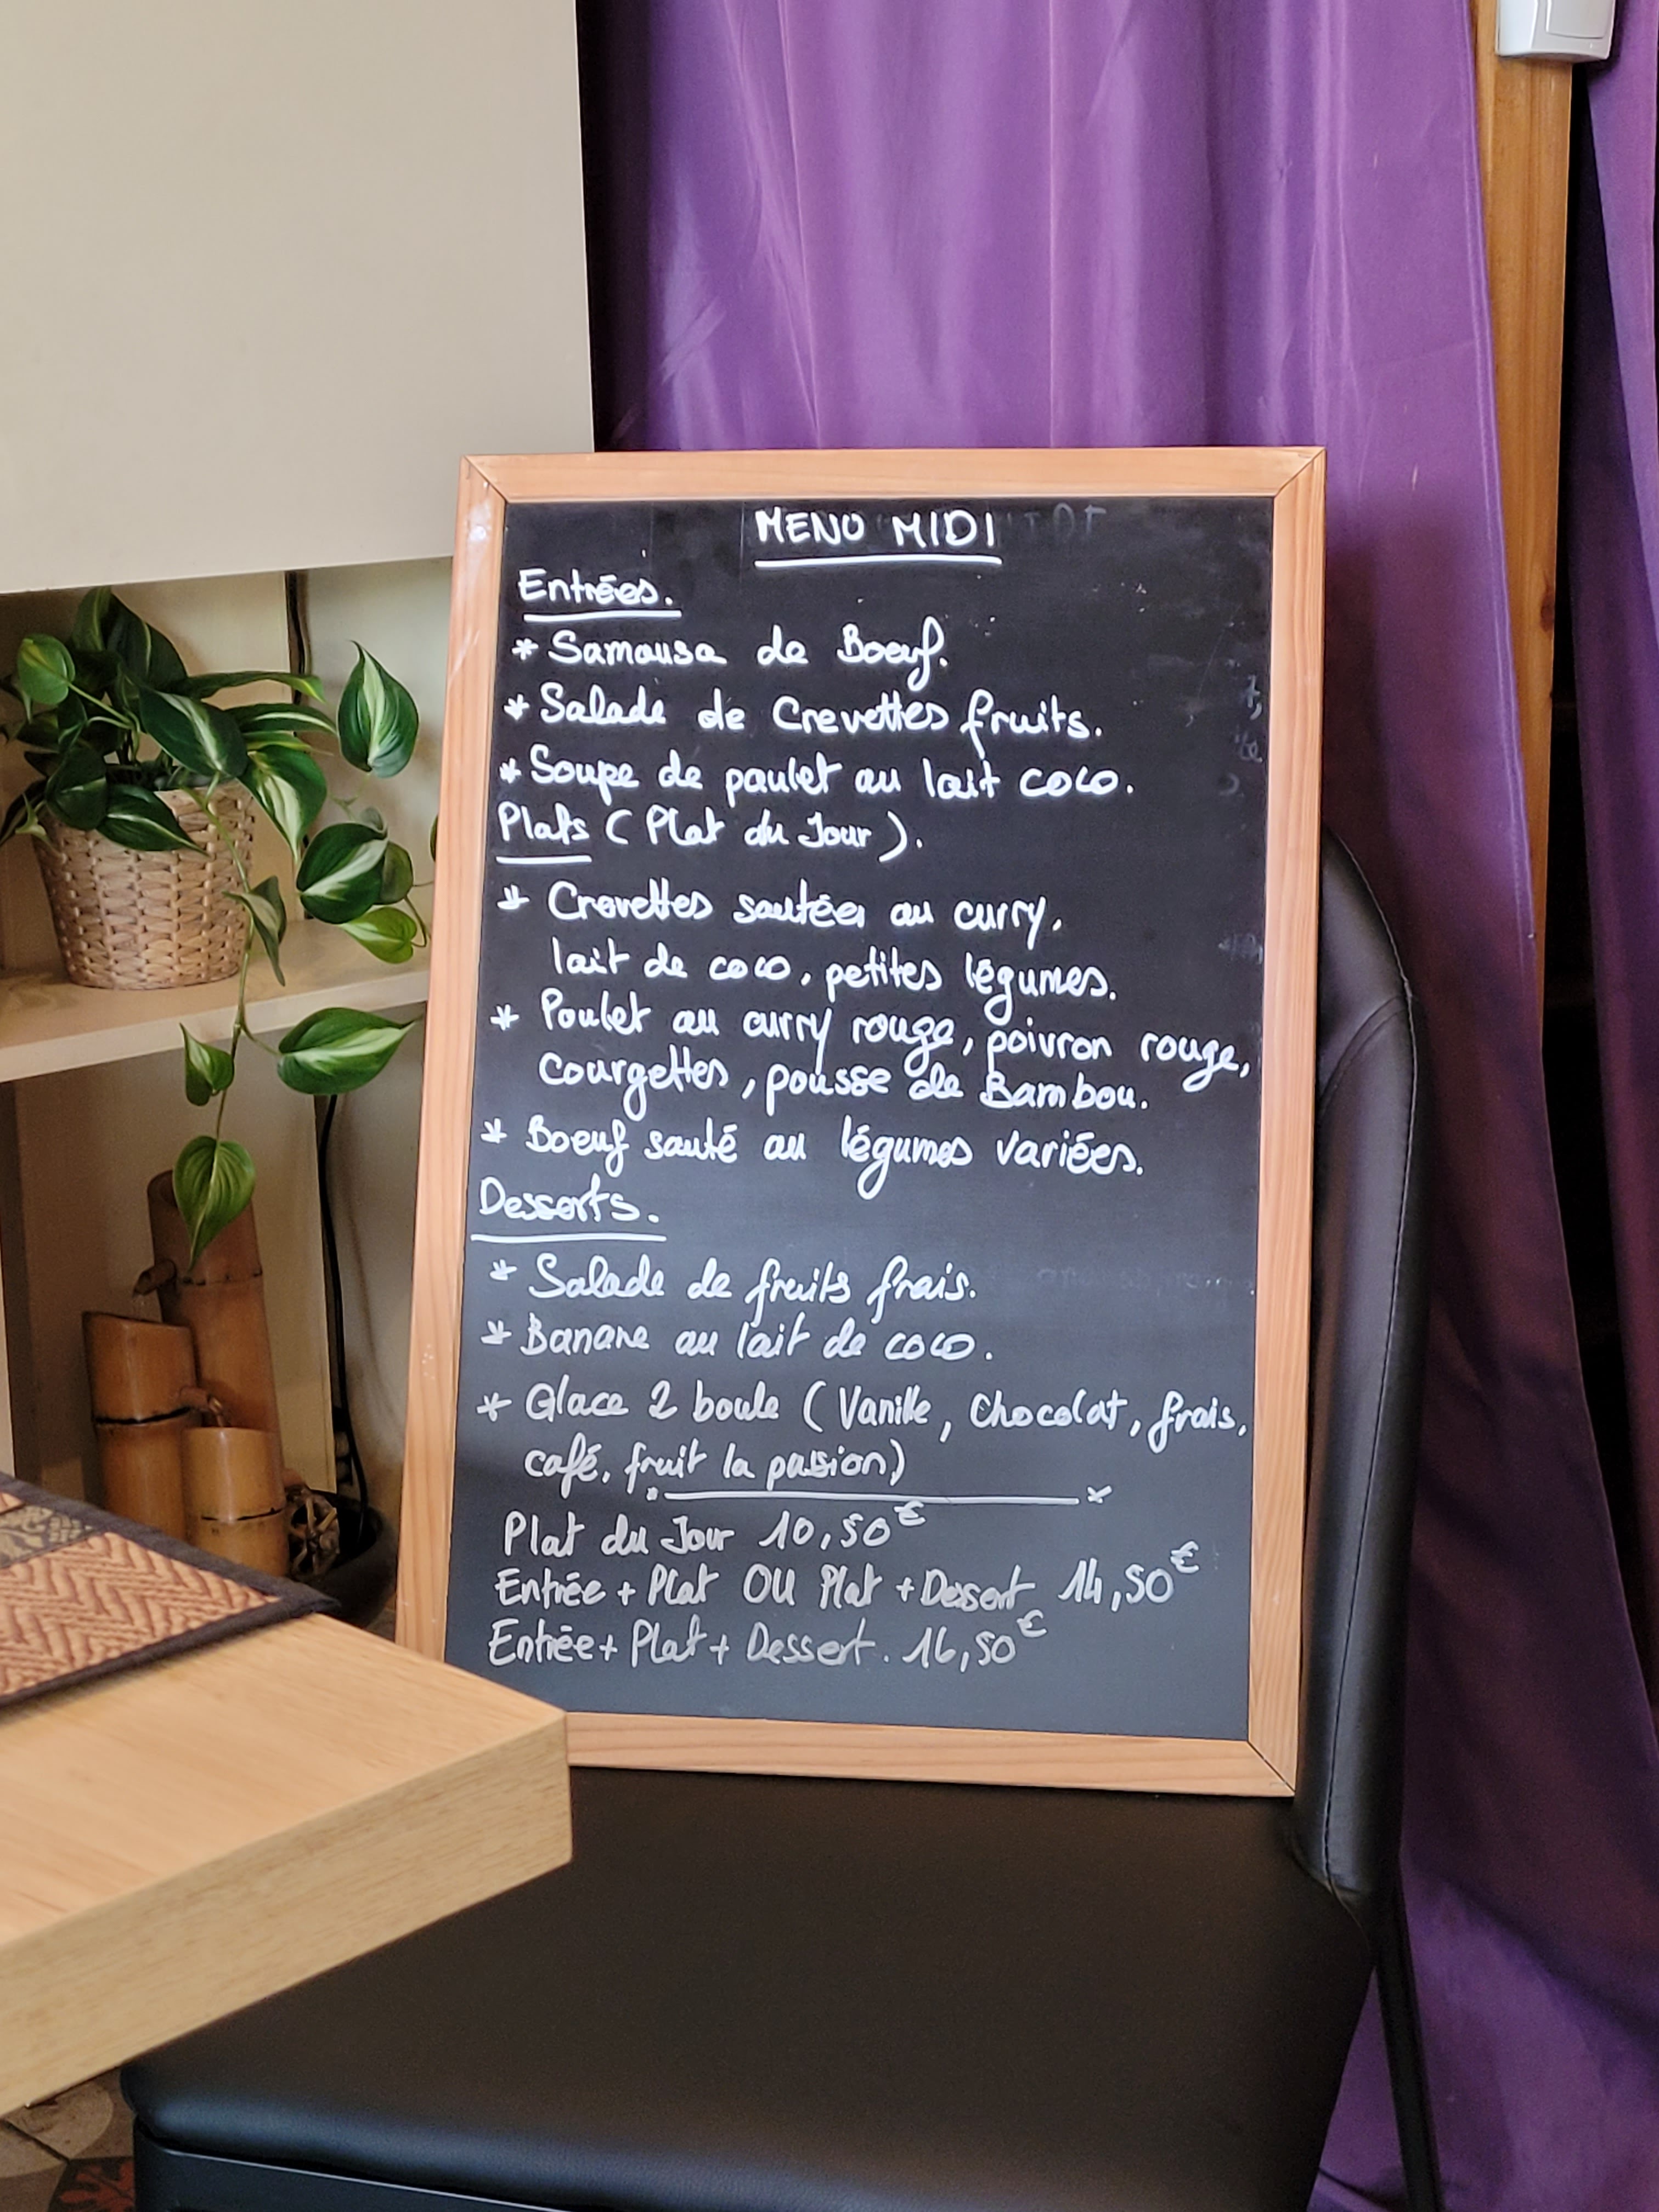 MENU MIDI
Entrées.
* Samousa de Boeuf.
* Salade de Crevettes fruits.
* Soupe de poulet au lait coco.
Plats ( Plat du Jour ).
* Crevettes sautées au curry,
lait de coco, petites légumes.
* Poulet au curry rouge, poivron rouge,
courgettes, pousse de Bambou.
* Boeuf sauté au légumes variées.
Desserts.
* Salade de fruits frais.
* Banane au lait de coco.
* Glace 2 boule ( Vanille, Chocolat, frais,
café, fruit la passion)
Plat du Jour 10,50€
Entrée + Plat OU Plat + Dessert 14,50€
Entrée + Plat + Dessert. 16,50€